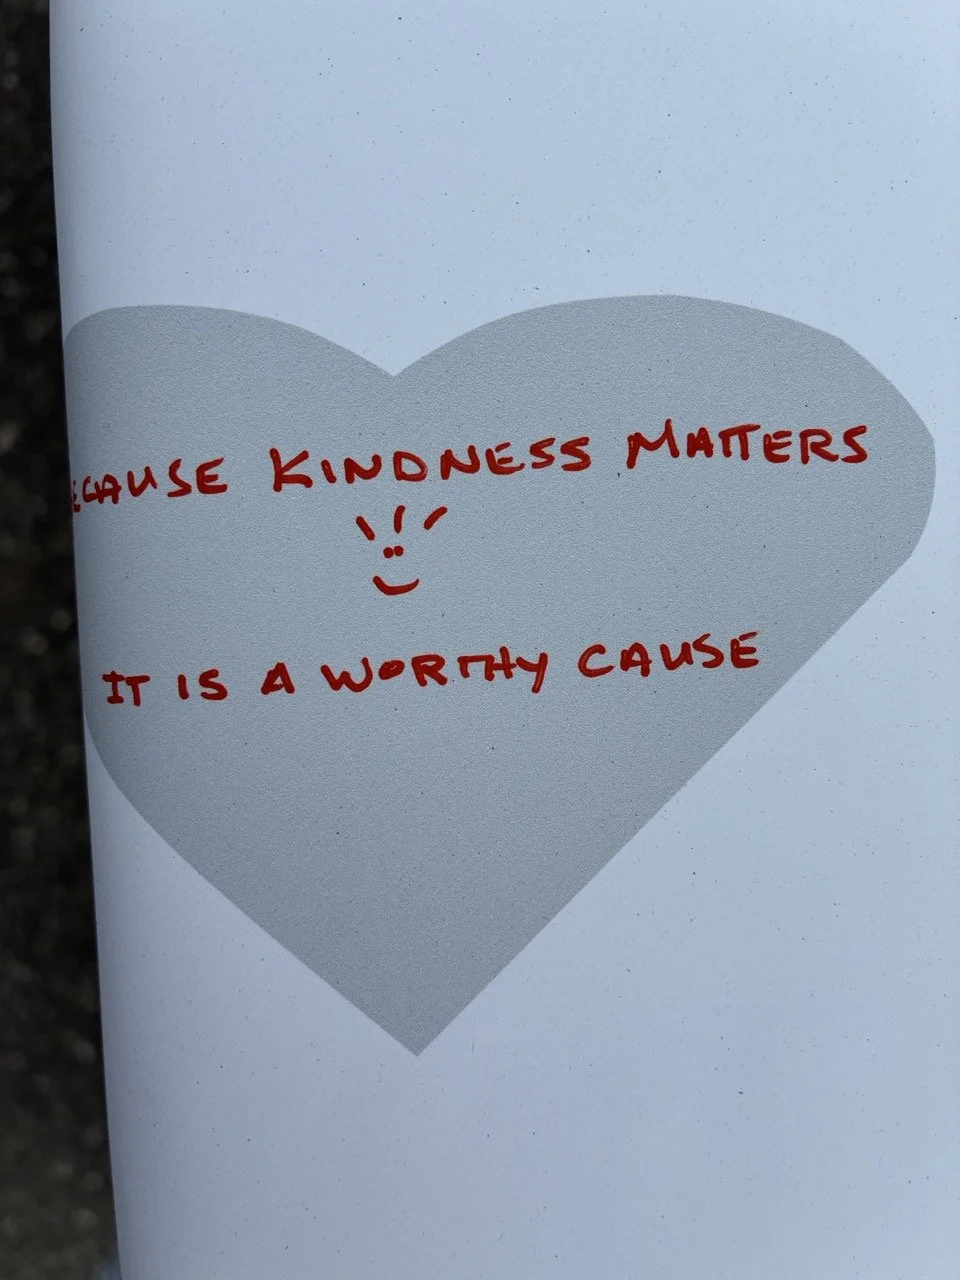 ECAUSE KINDNESS MATTERS
IT IS A WORTHY CAUSE